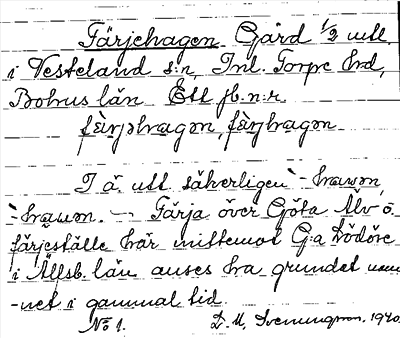 Färjehagen Gård 1/2 utt.
i Vesteland s:n, Inl. Torpe hrd,
Bohus län Ett jb.n:r.
färjəhagən, färjhagən
I ä. utt. säkerligen -hawən,
-hauən. — Färja över Göta Älv o.
färjeställe här mittemot G:a Lödöse
i Älfsb. län anses ha grundat nam-
-net i gammal tid.
No 1. 1940